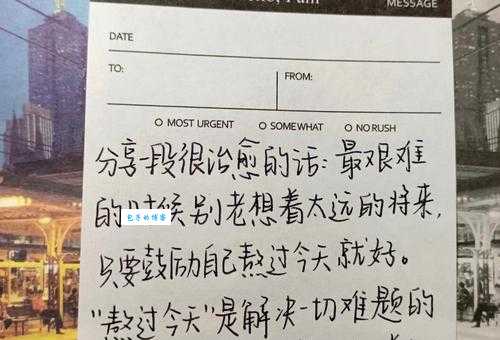 MESSAGE
DATE
TO:
FROM:
MOST URGENT SOMEWHAT NO RUSH
分享一段很治愈的话：最艰难
的时候别老想着太远的将来，
包子的博客
只要鼓励自己熬过今天就好。
“熬过今天”是解决一切难题的